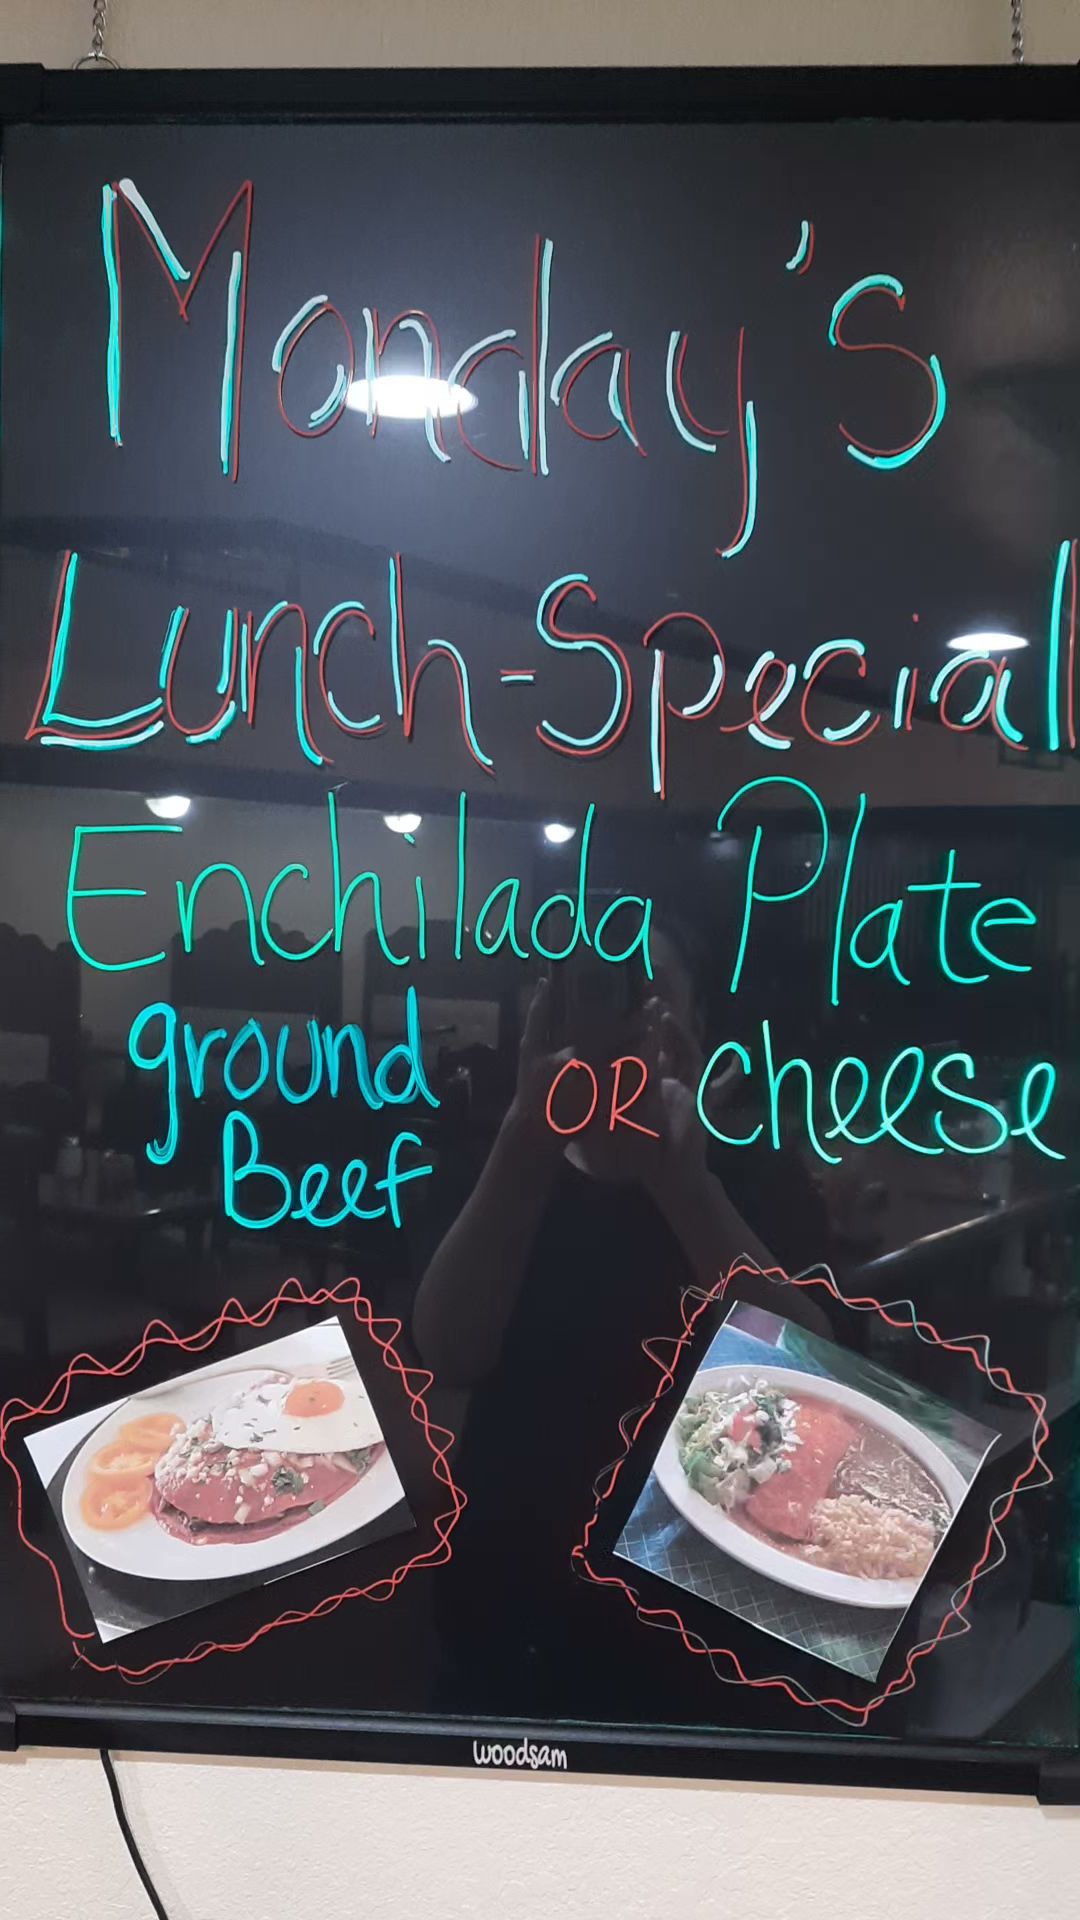 Monday's
Lunch-Special
Enchilada Plate
ground Beef OR cheese
woodsam